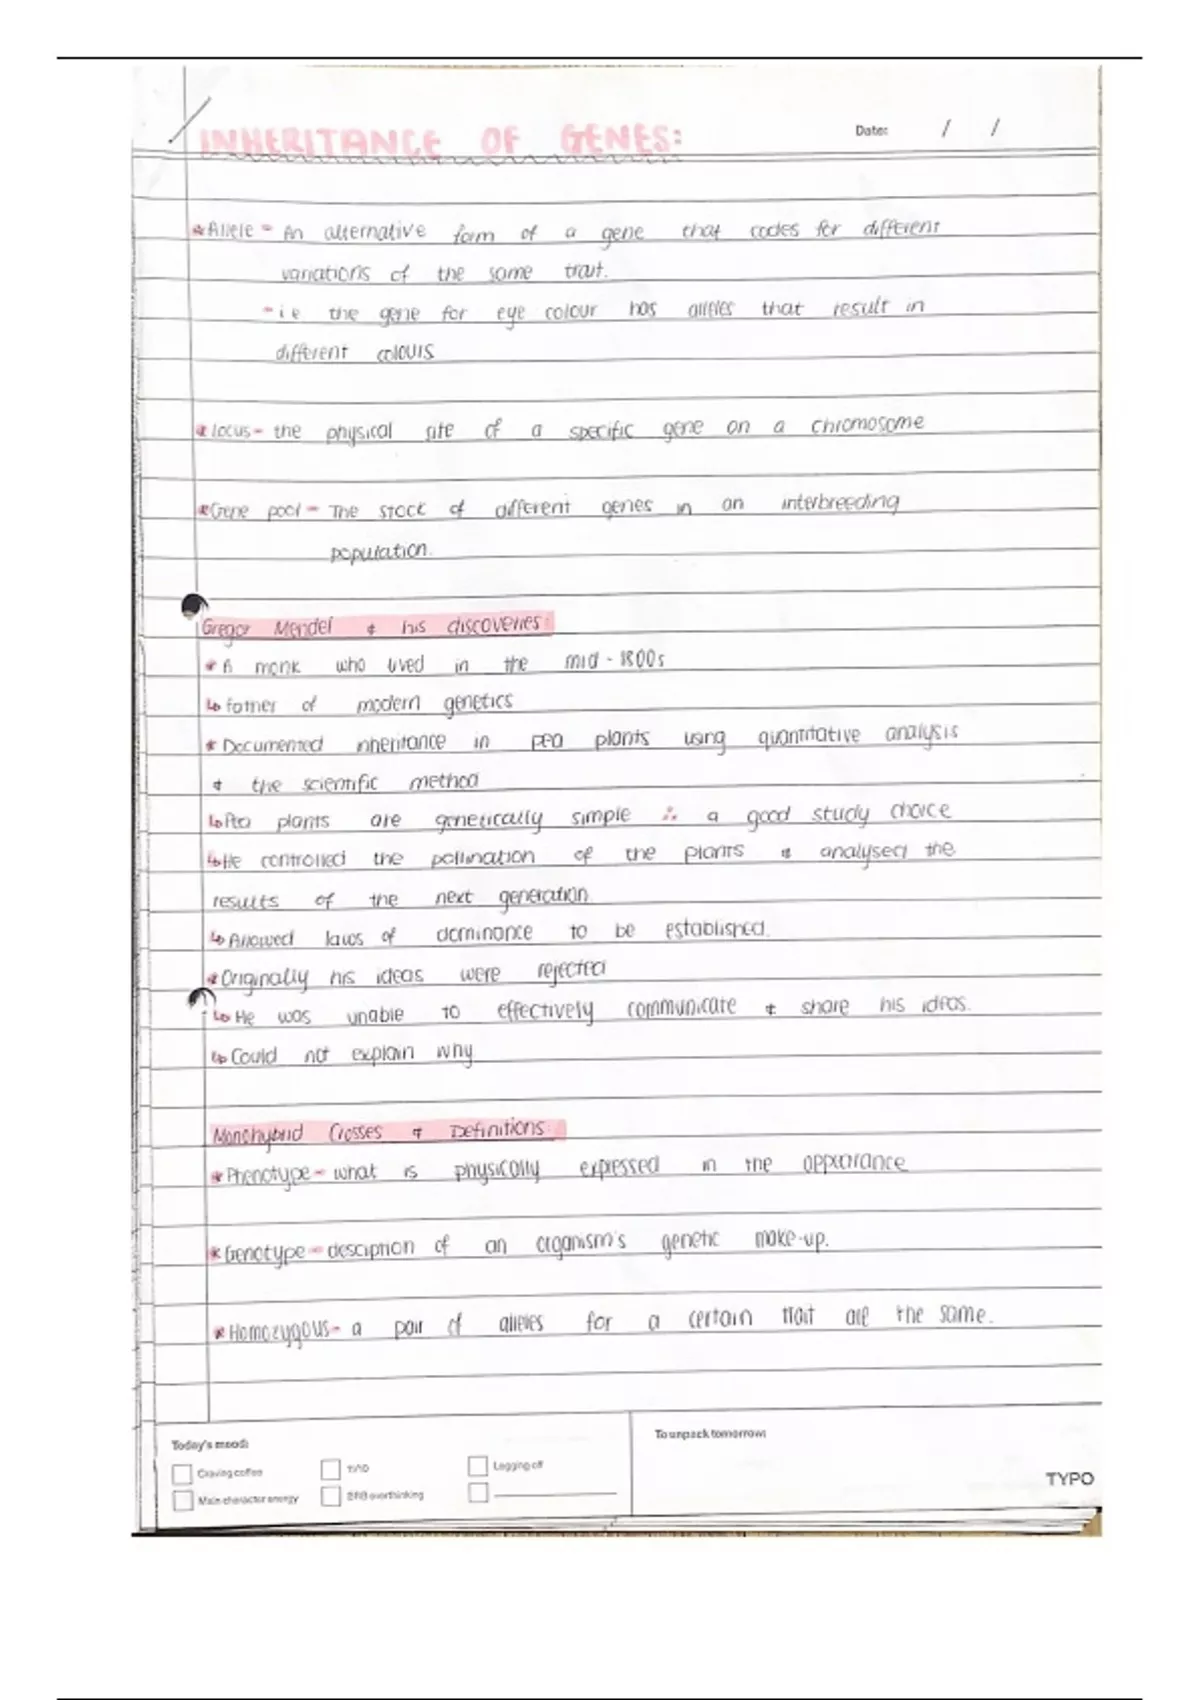 INHERITANCE OF GENES:
Date: / /
* Allele - An alternative form of a gene that codes for different
variations of the same trait.
- i.e the gene for eye colour has alleles that result in
different colours
* locus - the physical site of a specific gene on a chromosome
* Gene pool - The stock of different genes in an interbreeding
population.
Gregor Mendel & his discoveries:
* A monk who lived in the mid - 1800s
↳ father of modern genetics
* Documented inheritance in pea plants using quantitative analysis
& the scientific method
↳ Pea plants are genetically simple ∴ a good study choice
↳ He controlled the pollination of the plants & analysed the
results of the next generation
↳ Allowed laws of dominance to be established.
* Originally his ideas were rejected
↳ He was unable to effectively communicate & share his ideas.
↳ Could not explain why
Monohybrid Crosses & Definitions:
* Phenotype - what is physically expressed in the appearance
* Genotype - desciption of an organism's genetic make-up.
* Homozygous - a pair of alleles for a certain trait are the same.
Today's mood:
To unpack tomorrow:
Craving coffee
Logging off
Main character energy
BRB overthinking
TYPO